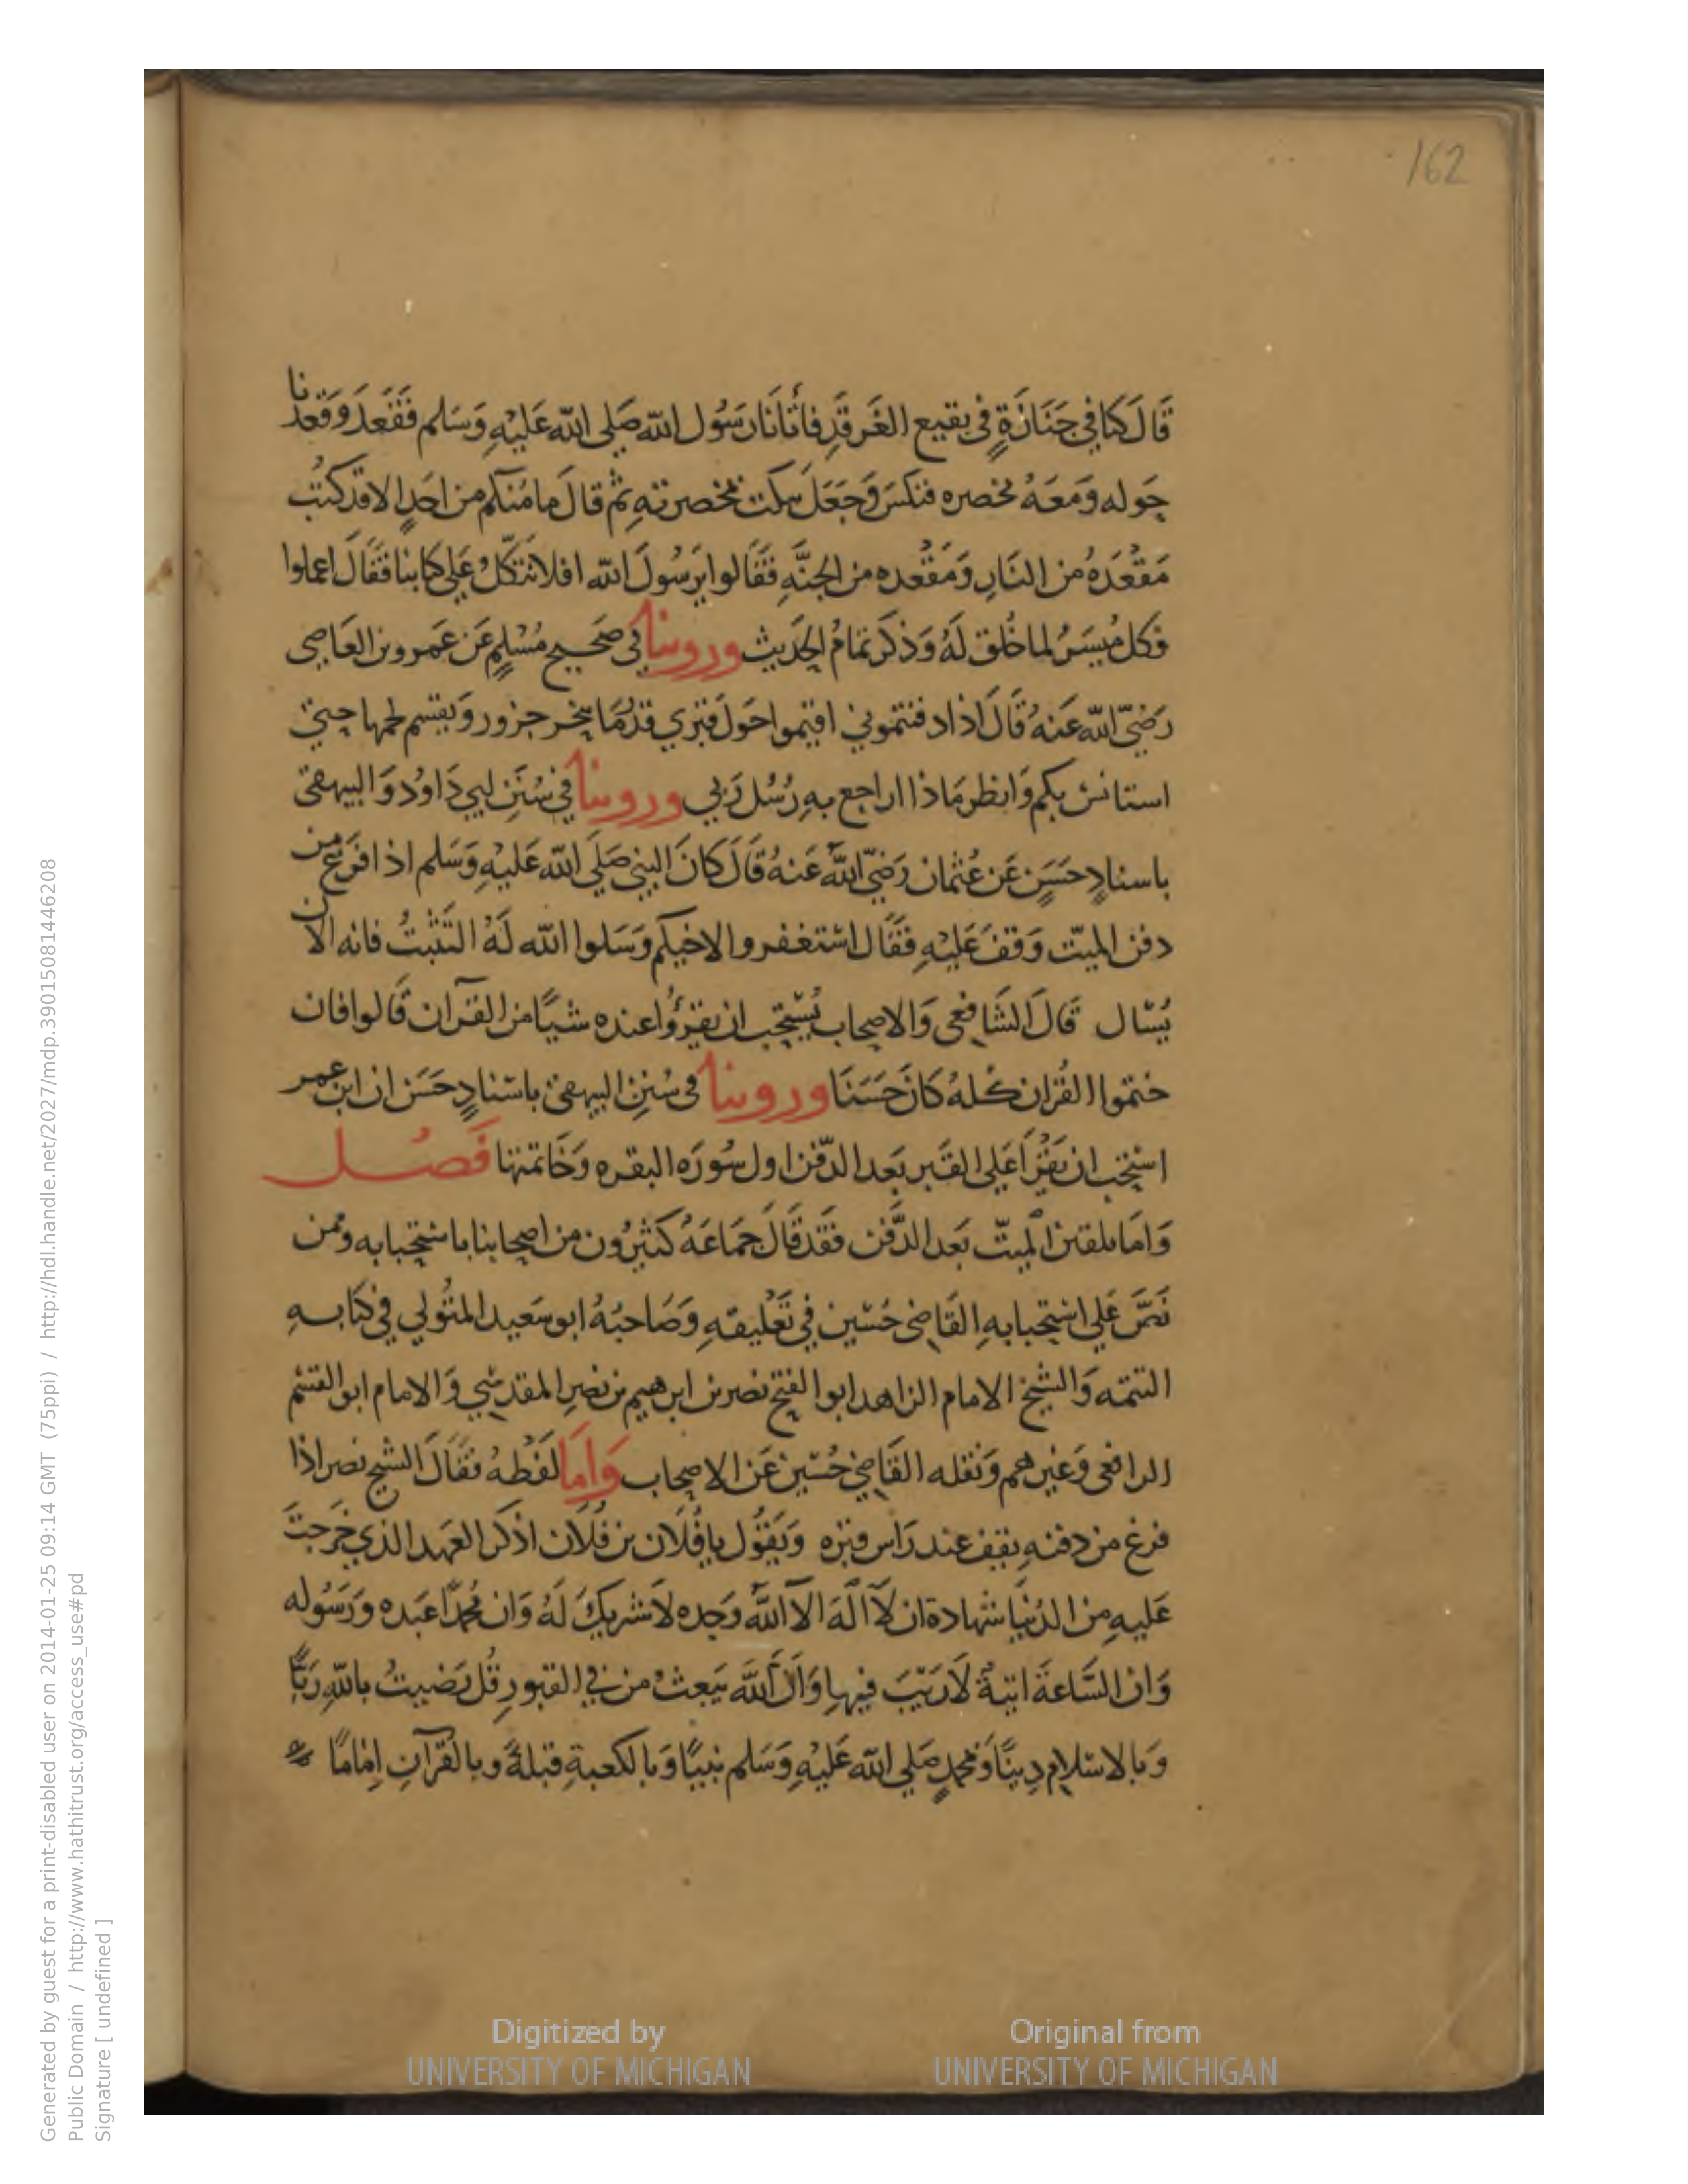 162
قَالَ كنا في جَنَازَةٍ في بقيع الغَرقَدِ فاتَانَا رَسُول الله صَلى الله عَليْهِ وَسَلم فَقَعَدَ وَقعدنا
حَوله وَمَعَهُ مخصره فنكسَ وَجَعَلَ ينكت بمخصرتهِ ثم قالَ ما مُنكم من احَدٍ الا قد كتب
مَقْعَدَهُ من النَارِ وَمَقْعده من الجنَّهِ فقَالوا يَرسُولَ الله افلا نتكّلُ عَلي كتابنا فقَالَ اعملوا
فكل مُيسَرُ لما خلق لَهُ وَذكَر تمامُ الحَديث وروينا في صَحيح مُسْلِمٍ عَن عَمرو بن العَاصِي
رَضيّ الله عَنهُ قَالَ اذا دفنتموني اقيموا حَولَ قبري قدرَ مَا ينحر جزور وَيقسم لحمها حتي
استانس بكم وَانظر مَاذا اراجع بهِ رُسُل رَبي وروينا في سُنَنِ ابي دَاودَ وَالبيهقى
باسنادٍ حَسَنٍ عَن عُثمان رَضيّ اللهُ عَنهُ قَالَ كانَ النبي صَلَي الله عَليْهِ وَسَلم اذا فرَغ من
دفن الميّت وَقفَ عَليْهِ فقَال اسْتغفروا لاخيكم وَسَلوا الله لَهُ التَّثْبتُ فانه الان
يُسْال قَالَ الشَافعى وَالاصحاب يُسْتحب ان يقرؤُا عنده شيًا من القرآن قَالوا فان
ختموا القُران كلهُ كانَ حَسَنَا وروينا في سُننِ البيهقى باسْنادٍ حَسَن ان ابن عمر
استحب ان يَقرَأ عَلى القَبر بَعد الدّفن اول سُورَه البقره وَخَاتمتها فَصُل
وَامَا تلقين الميّت بَعد الدَّفن فقَد قَالَ جَمَاعَهُ كَثيرُون من اصحابنا باسْتحبابه وممن
نَصَّ عَلي استحبابهِ القَاضى حُسْين في تَعْليقهِ وَصَاحبُهُ ابو سَعيد المتُولي في كتابهِ
التتمّه وَالشيخ الامام الزاهد ابوا الفتح نصر بن ابرهيم بن نصرِ المقدسي وَالامام ابو القسم
الرافعى وَغيرهم وَنقله القَاضي حُسْين عَن الاصحاب وَامَا لفْظهُ فقَالَ الشيخ نصر اذا
فرغ من دفنهِ يقف عند رَاس قبره وَيَقوُل يا فُلَان بن فُلَان اذكر العَهد الذي خَرجتَ
عَليهِ من الدُنيَا شهادة ان لآ الَهَ الآ اللهُ وَحِده لاَ شريكَ لَهُ وَان مُحمّدًا عَبده وَرَسُوله
وَانَ السَّاعَةَ اتيةٌ لاَ رَيْبَ فيهِا وَانَ اللّهَ يَبعثُ من في القبورِ قُل رَضيتُ باللهِ رَبًّا
وَبالاسْلامِ دِينًا وَبمحمدٍ صَلى الله عَليْهِ وَسَلم نبيًا وَبالكعبةِ قبلةً وبالقُرآنِ اِمَامًا
Digitized by
UNIVERSITY OF MICHIGAN
Original from
UNIVERSITY OF MICHIGAN
Generated by guest for a print-disabled user on 2014-01-25 09:14 GMT (75ppi) / http://hdl.handle.net/2027/mdp.39015081446208
Public Domain / http://www.hathitrust.org/access_use#pd
Signature [ undefined ]